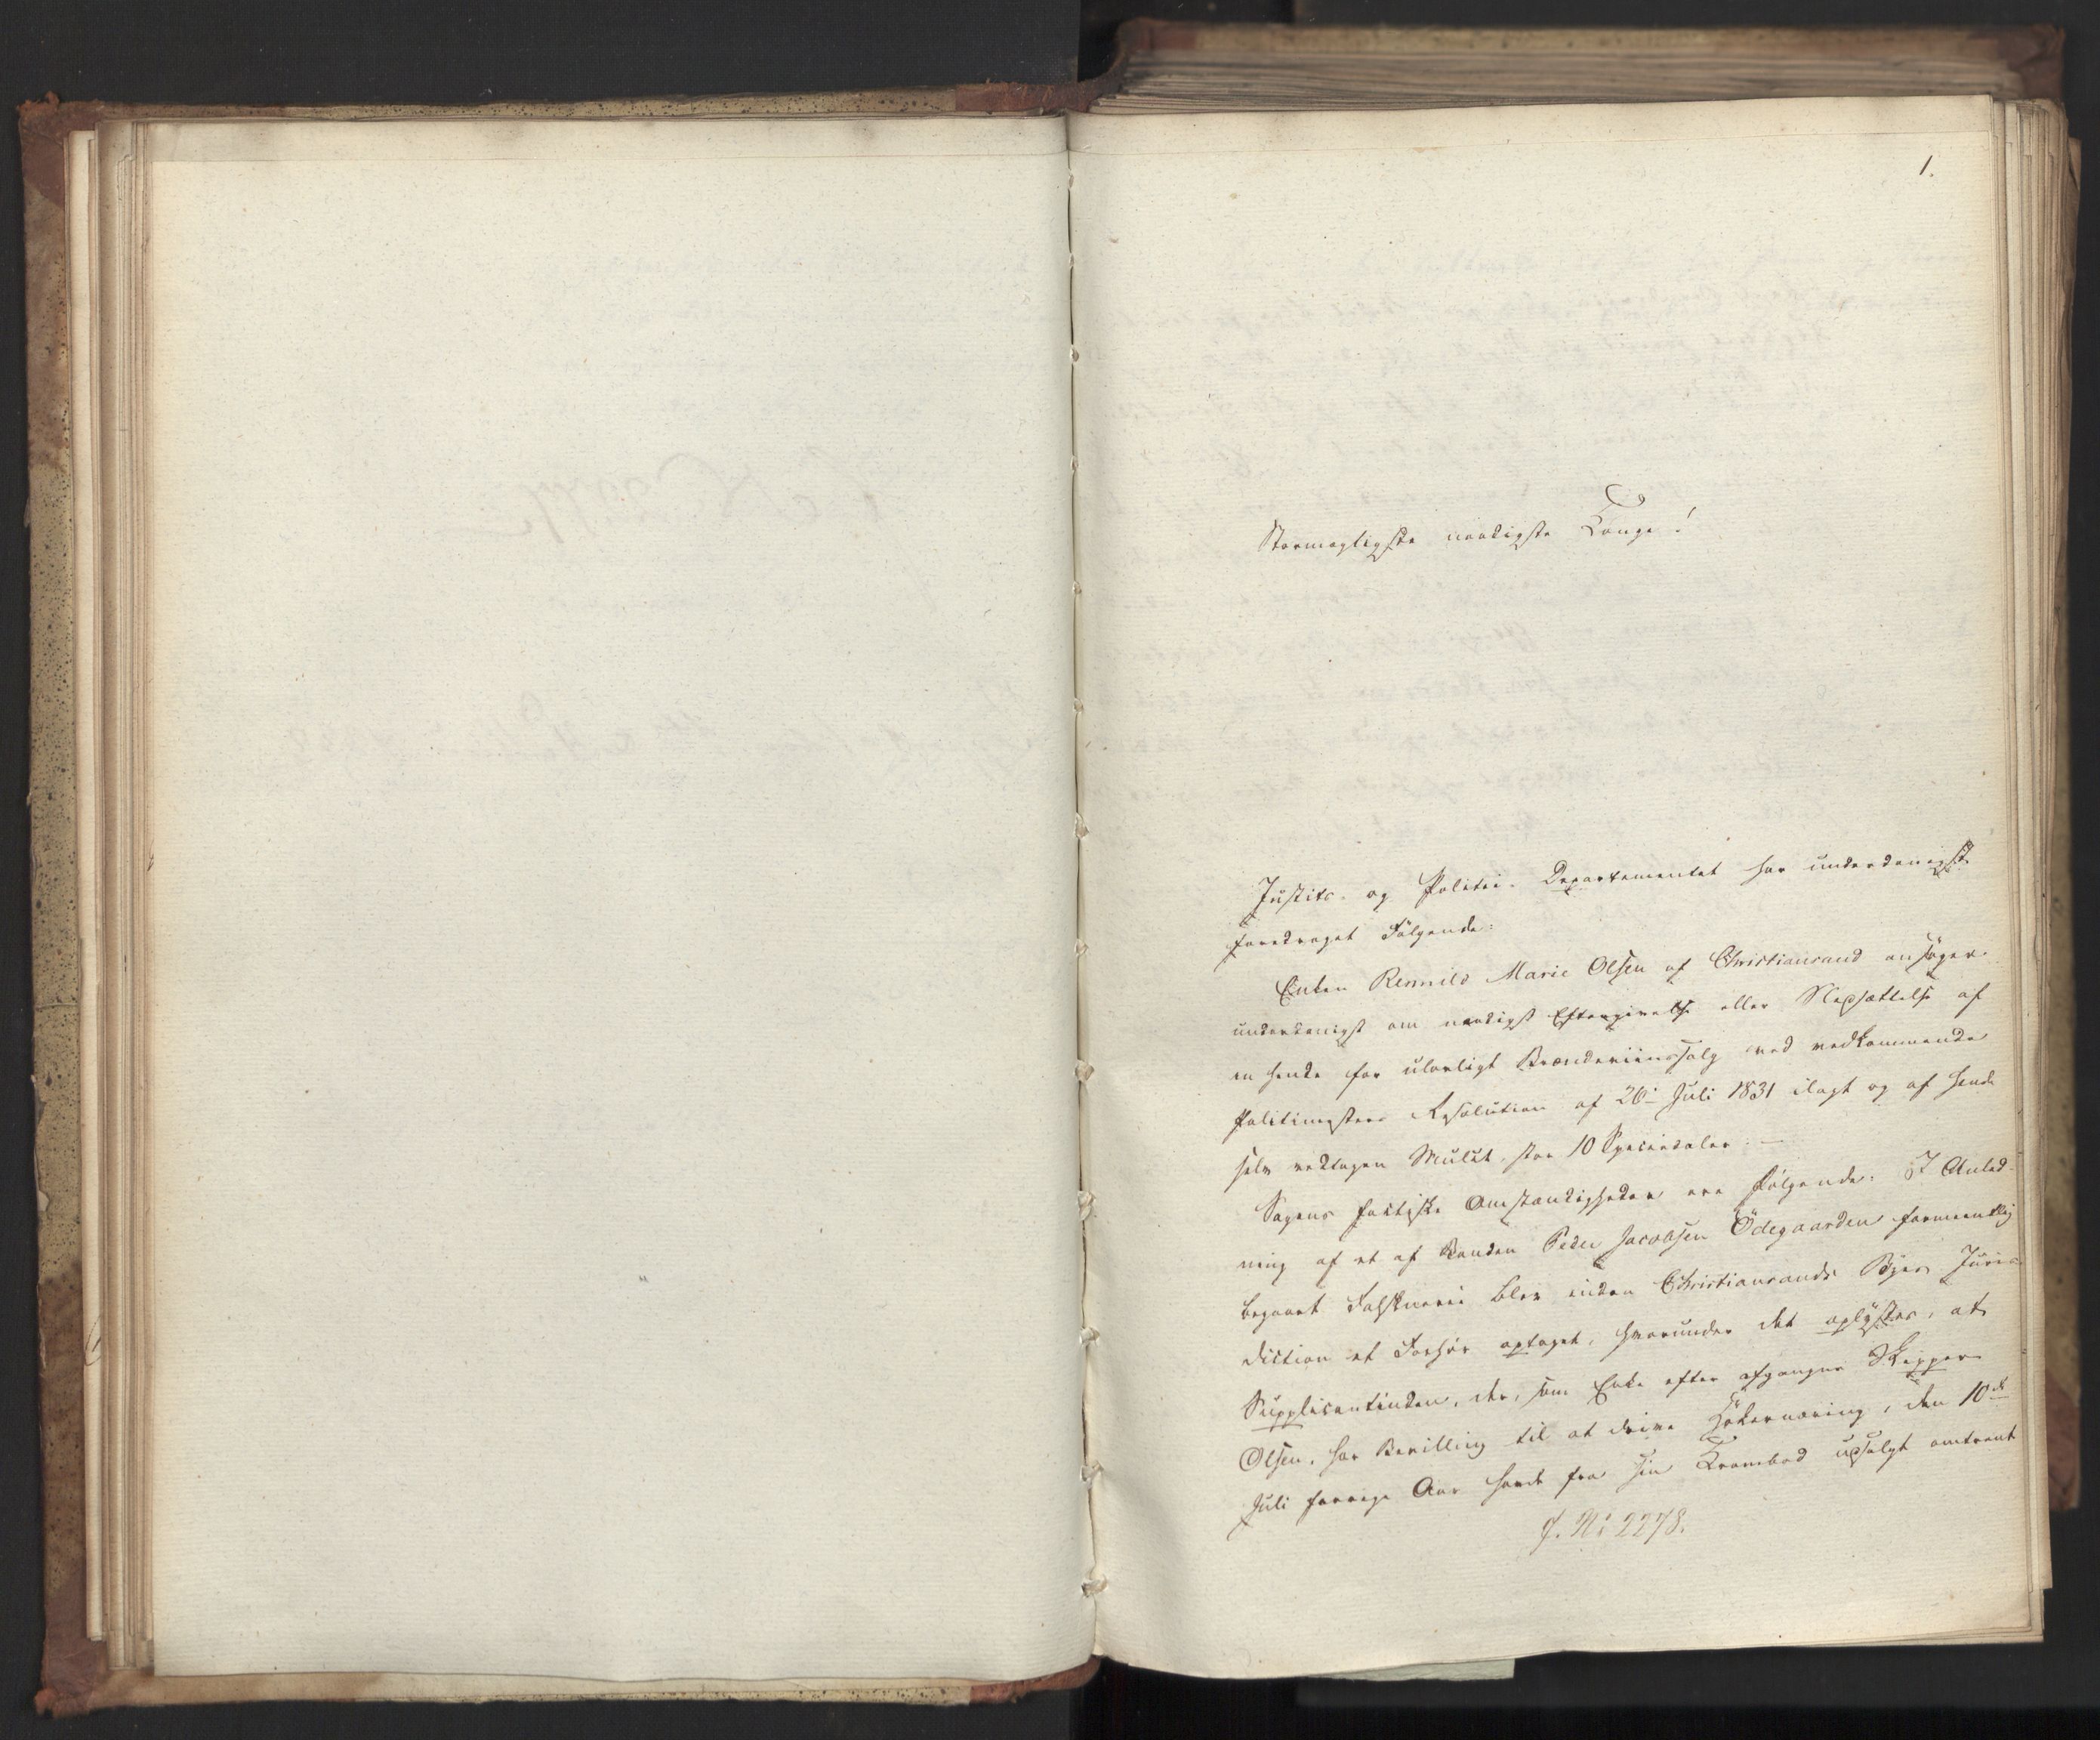 1.
Stormægtigste naadigste Konge!
Justits- og Politie-Departementet har underdanigst
foredraget Følgende:
Enken Rennild Marie Olsen af Christiansand ansøger
underdanigst om naadigst Eftergivelse eller Nedsættelse af
en hende for ulovligt Brændeviinssalg ved vedkommende
Politimesters Resolution af 26de Juli 1831 ilagt og af hende
selv vedtagen Mulct, stor 10 Speciedaler. –
Sagens factiske Omstændigheder ere følgende: I Anled-
ning af et af Bonden Peder Jacobsen Ödegaarden formeentlig
begaaet Falskneri blev inden Christiansands Byes Juris-
diction et Forhør optaget, hvorunder det oplystes, at
Supplicantinden, der, som Enke efter afgangne Skipper
Olsen, har Bevilling til at drive Høkernæring, den 10de
Juli forrige Aar havde fra sin Krambod udsolgt omtrent
J. No 2278.